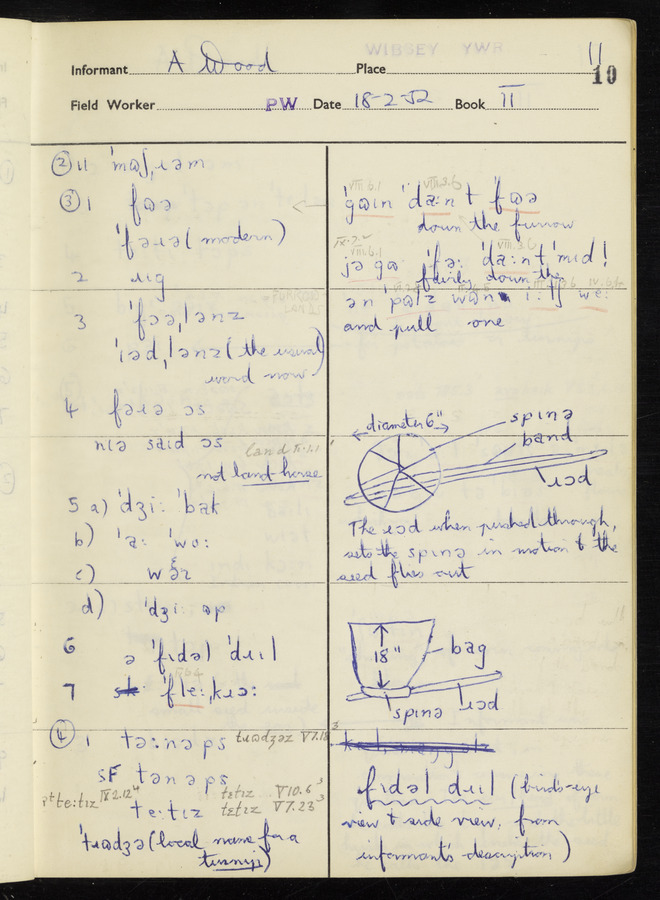 WIBSEY YWR 11
Informant A Wood Place 10
Field Worker PW Date 18-2-52 Book II
② 11 ˈmaʃˌɪəm
③ 1 fɷə
ˈfəɹə (modern)
2 ɹig
3 ˈfɔəˌlənz
ˈiədˌlənz (the usual
word now)
4 fəɹə ɔs
nɪə said ɔs
land
not land horse
5 a) ˈdʒi: ˈbak
b) ˈa: ˈwo:
c)
d) ˈdʒi: əp
6 ə ˈfɪdəl ˈdɹɪl
7 ˈfle:ˌkɪə:
④ 1 tə:nəps tɹɷdʒəz V7.18
SF tənəps
te:tɪz IV 2.12 te:tɪz tɛtɪz V10.6
tɛtɪz V7.23
ˈtɹɷdʒə (local name for a
turnip)
VIII.6.1 VIII.3.6
ˈgɷin ˈda:n t ˈfɷə
down the furrow
VIII.6.1
jə gɷ ˈfə: ˈda:nt ˈmɪd!
fairly down the
ən pɷlz wan i: tʃ we:
and pull one
diameter 6"
spɪnə
band
ɹɔd
The ɹɔd when pushed through,
sets the spɪnə in motion & the
seed flies out
18"
bag
spɪnə ɹɔd
fɪdəl dɹɪl (birds-eye
view & side view, from
informant's description)